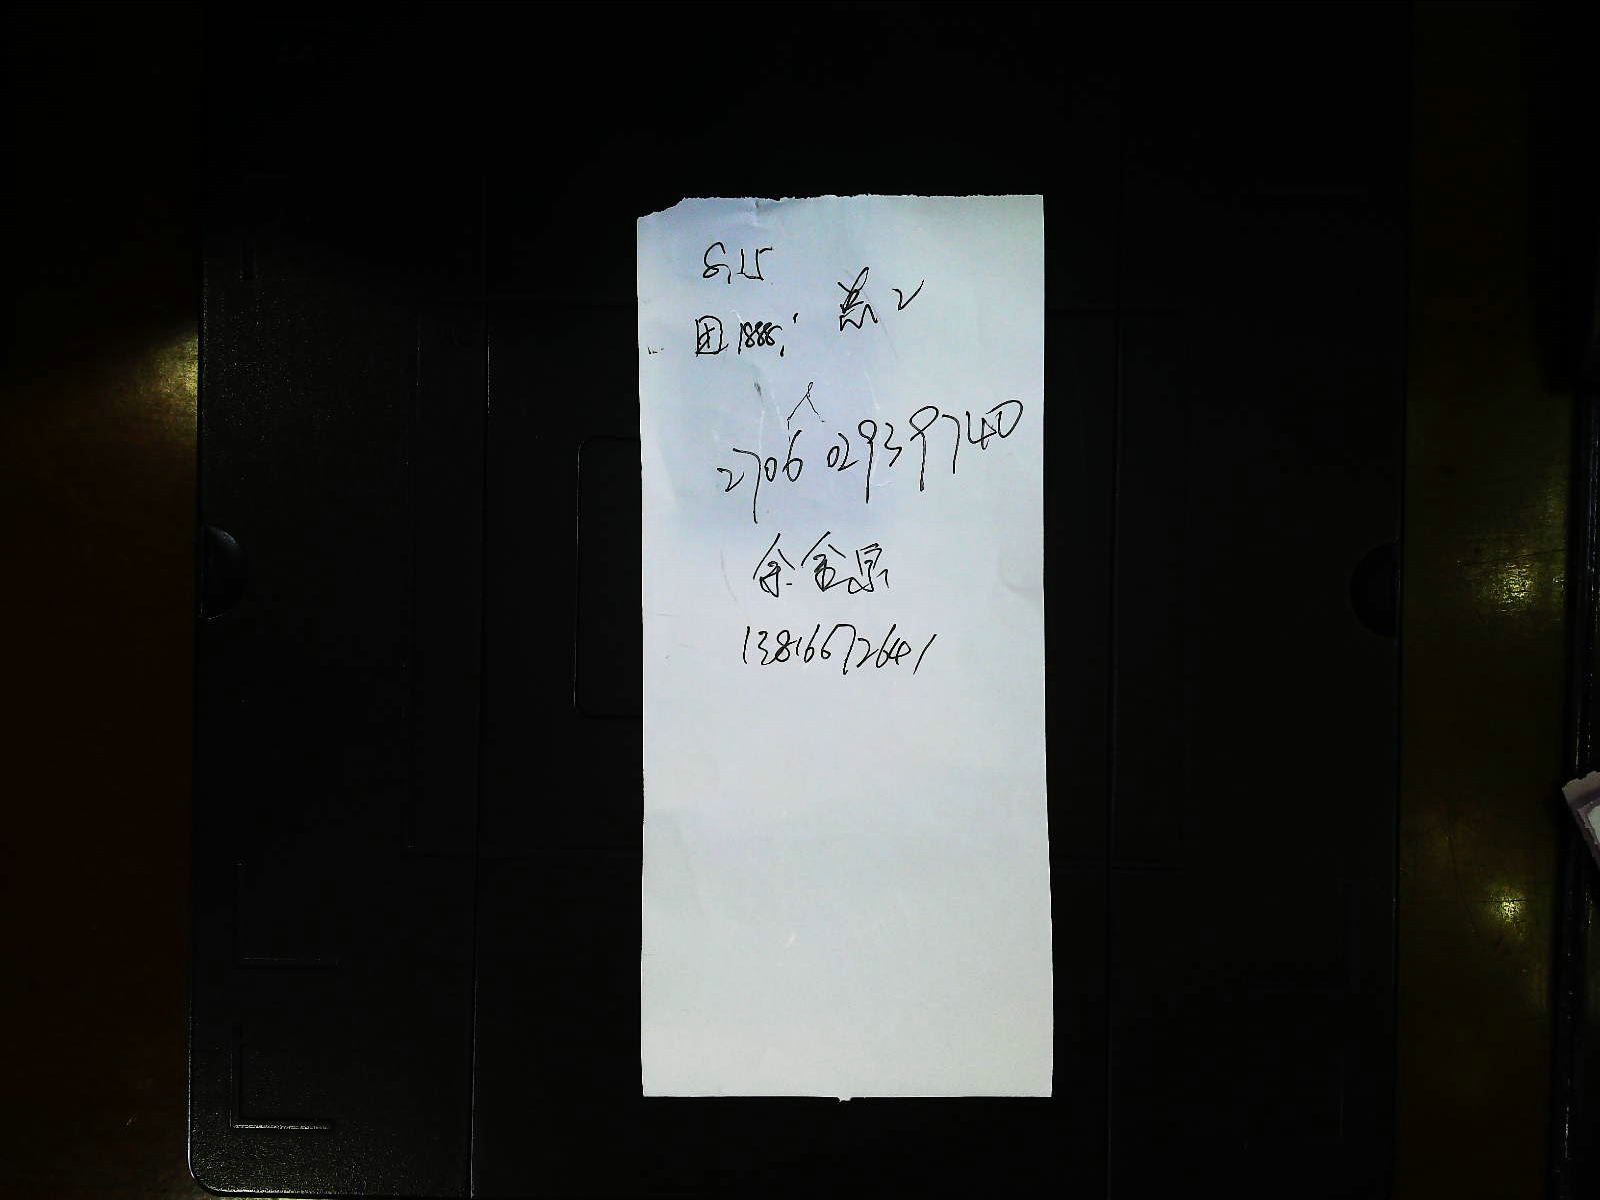 8,15
团1888,
2706 0293 9740
余金泉
13816672641